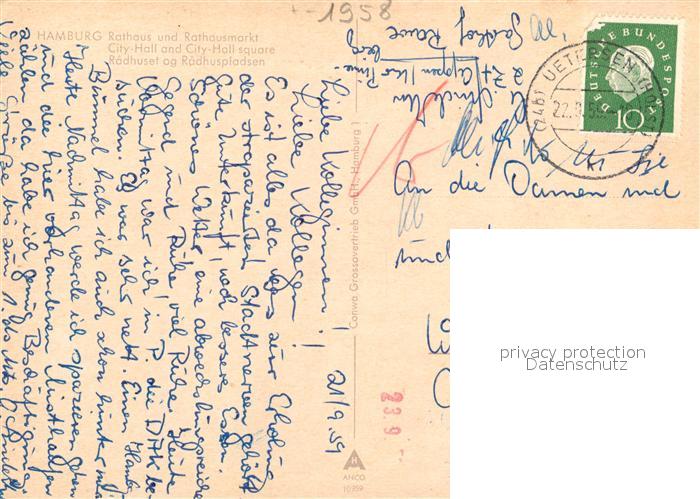 1958
HAMBURG Rathaus und Rathausmarkt
City-Hall and City-Hall square
Rådhuset og Rådhuspladsen
Liebe Kolleginnen!
Liebe Kollegen!
21/9.59
Es ist alles da was zur Erholung
der strapazierten Stadtnerven gehört
Gute Unterkunft, noch besseres Essen.
Schönes Wetter, eine abwechslungsreiche
Gegend und Ruhe, viel Ruhe. Heute
Vormittag war ich in P. die DAK be-
suchen. Es war sehr nett. Einen Hamb.
Bummel habe ich auch schon hinter mir
Heute Nachmittag werde ich spazieren gehen
und die hier vorhandenen Misthaufen
zählen, da habe ich genug Beschäftigung.
Viele Grüsse bis zum 1. des Mts.
Conwa Grossovertrieb GmbH., Hamburg 1
ANCO
10359
23.9.
DEUTSCHE BUNDESPOST
10
(24b) UETERSEN (HOLST)
22.9.59
An die Damen und
privacy protection
Datenschutz